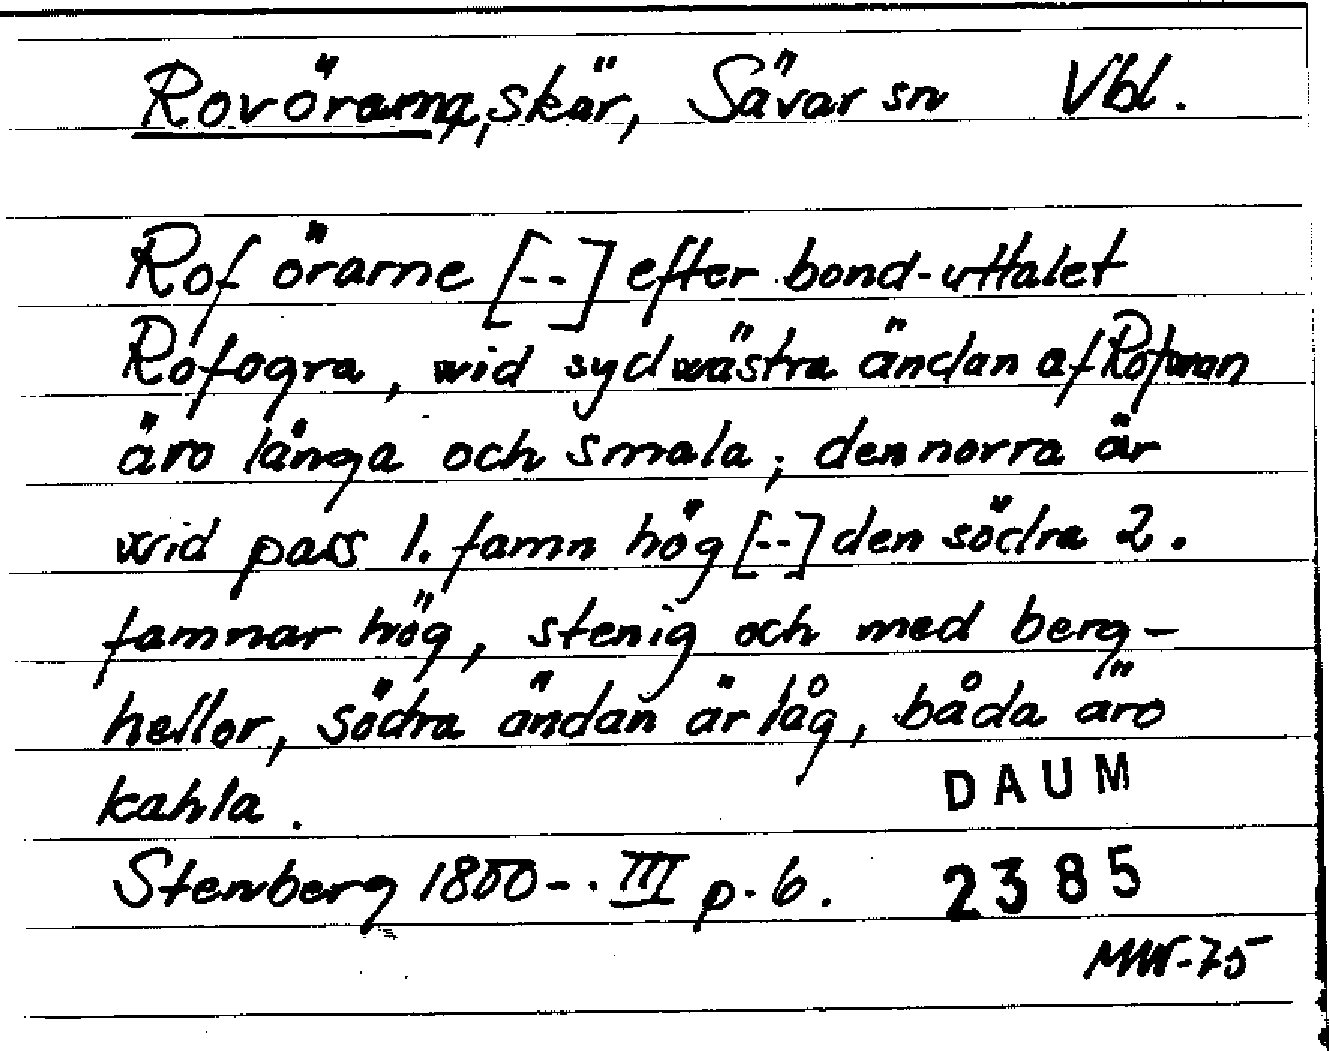 Rovörarna, skär, Sävar sn Vbl.
Rof örarne [--] efter bond-uttalet
Rofogra, wid sydwästra ändan af Rofwan
äro långa och smala; den norra är
wid pass 1. famn hög [--] den södra 2.
famnar hög, stenig och med berg-
hellor, södra ändan är låg, båda äro
kahla.
DAUM
Stenberg 1800-. III p. 6.
2385
MW-75